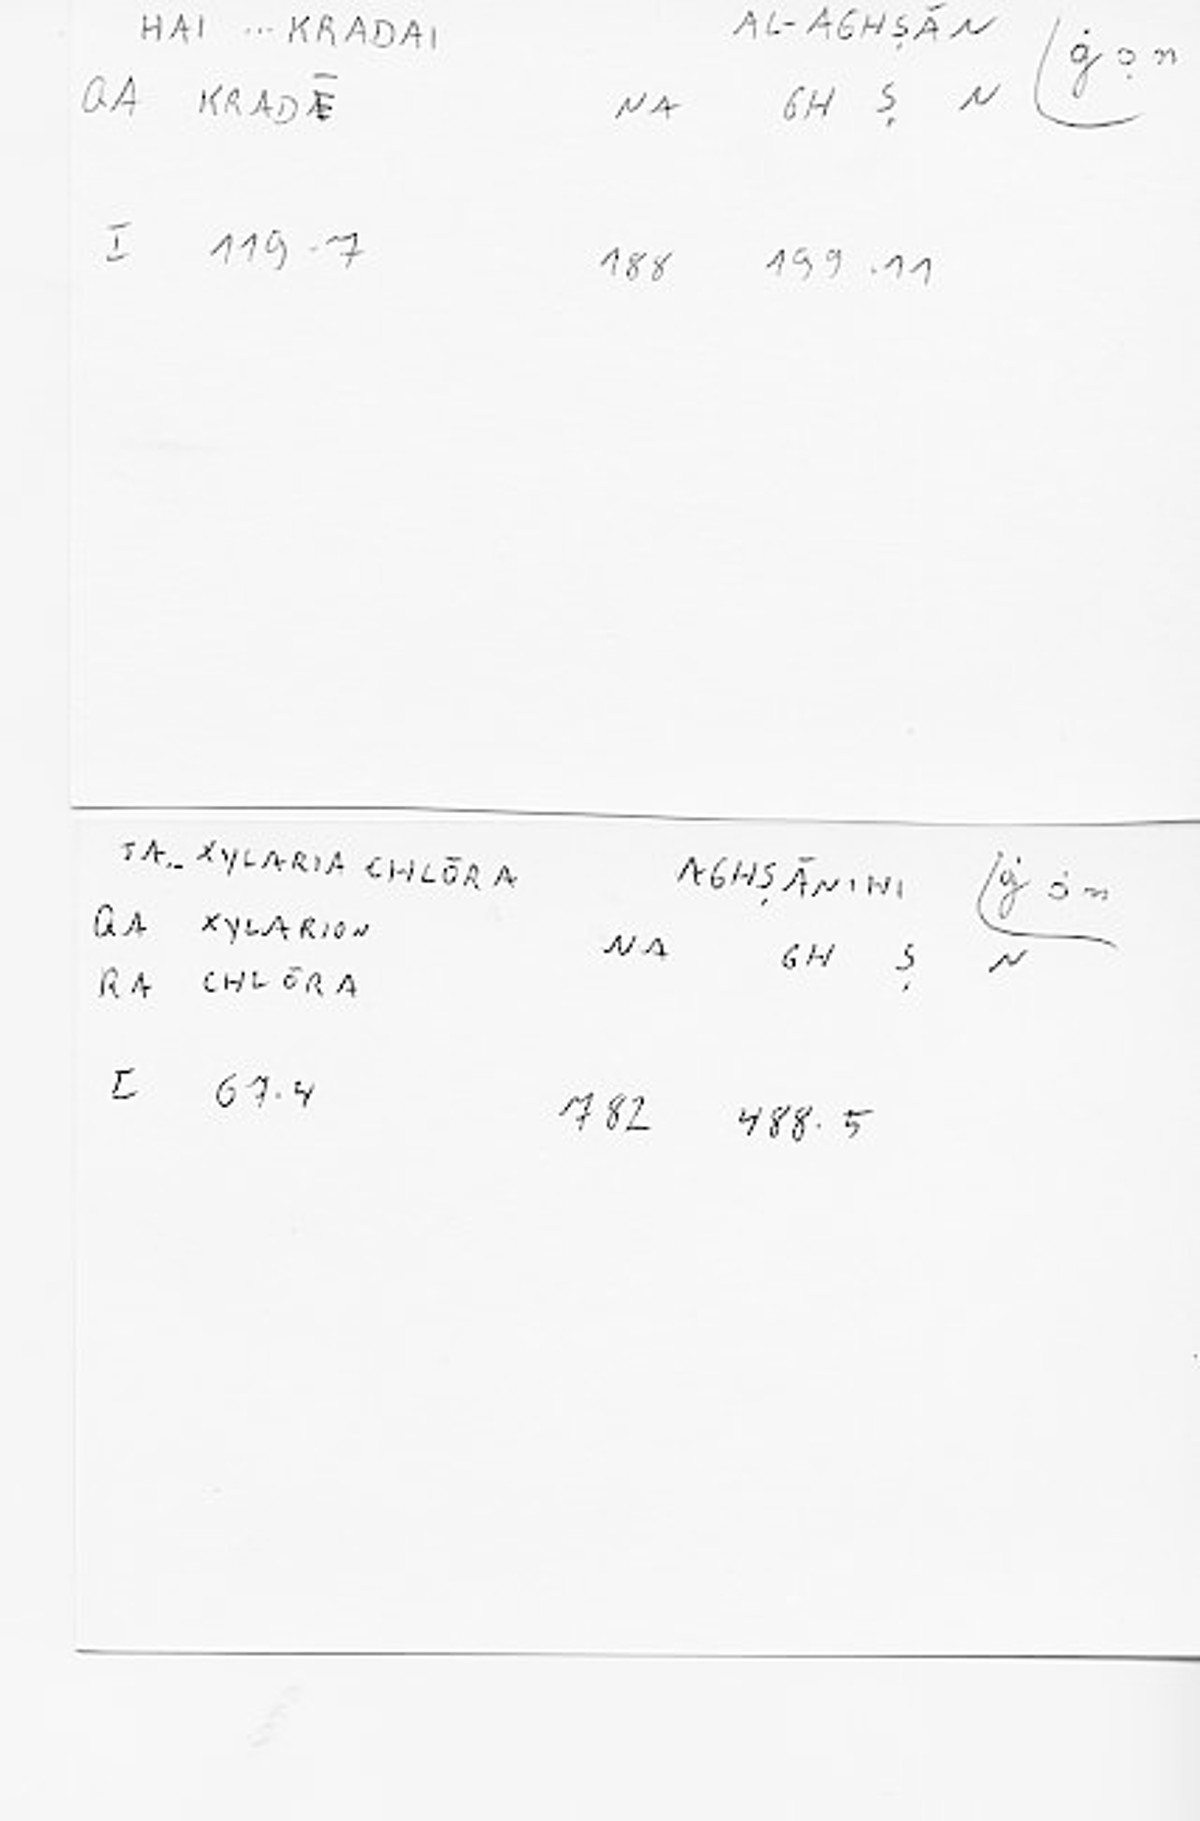 HAI ... KRADAI AL-AGHṢĀN ġṣn
QA KRADĒ NA GH Ṣ N
I 119.7 188 199.11
TA.. XYLARIA CHLŌRA AGHṢĀNIHI
QA XYLARION NA GH Ṣ N
RA CHLŌRA
I 67.4 782 488.5